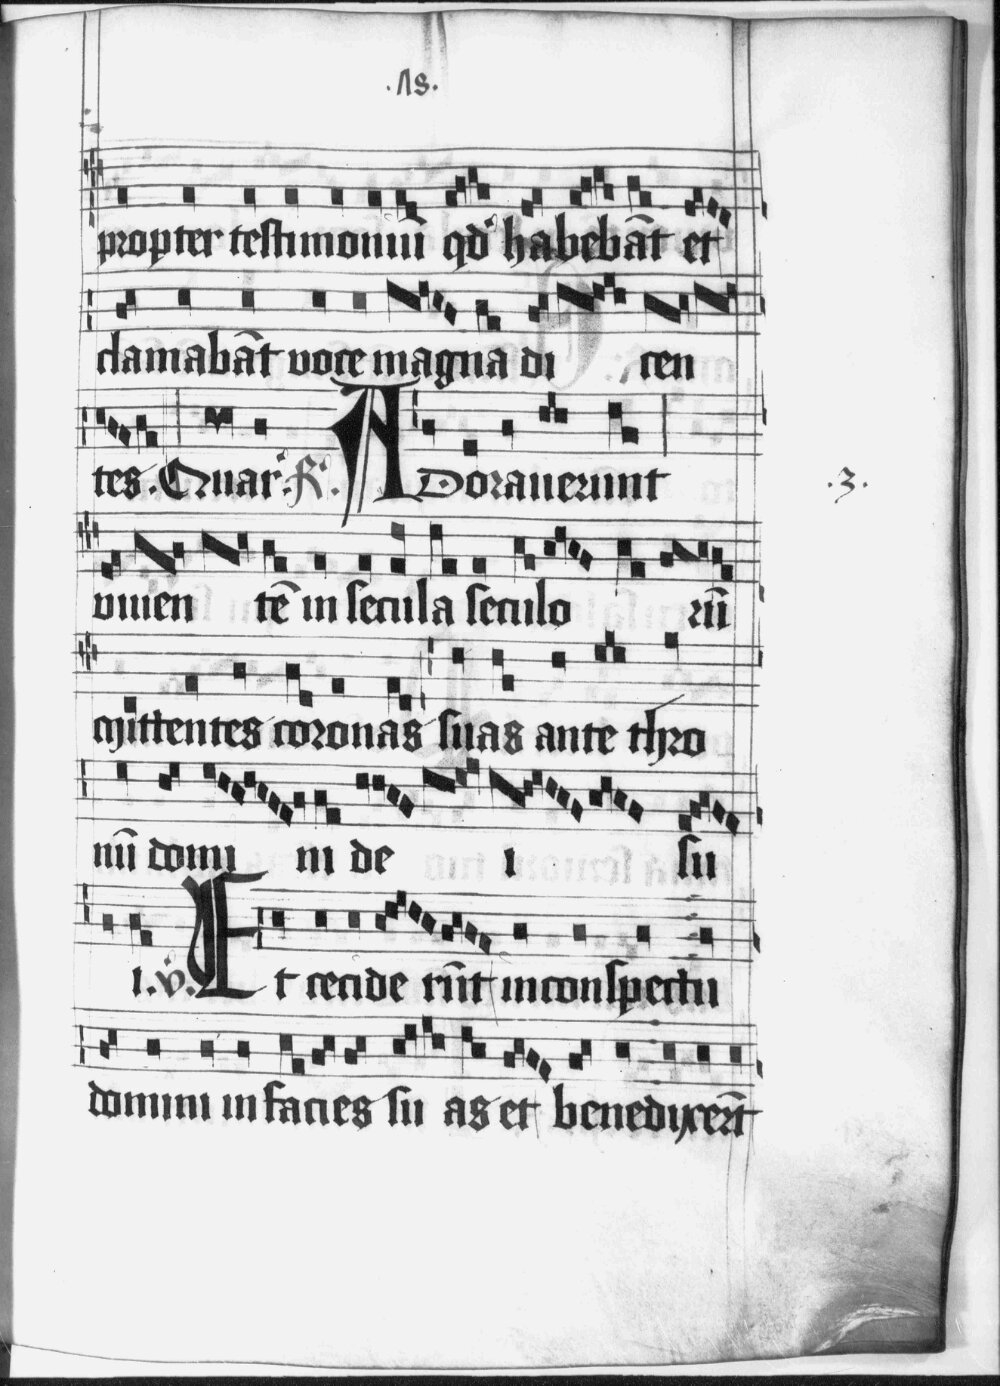 .15.
propter testimoniū qd̾ habebāt et
clamabāt voce magna di cen
tes. Quar̾. R̾. Adorauerunt
.3.
viuen tē in secula seculo rū
mittentes coronas suas ante thro
nū domi ni de i su
i. v̾. Et cecide rūt in conspectu
domini in facies su as et benedixer̄t